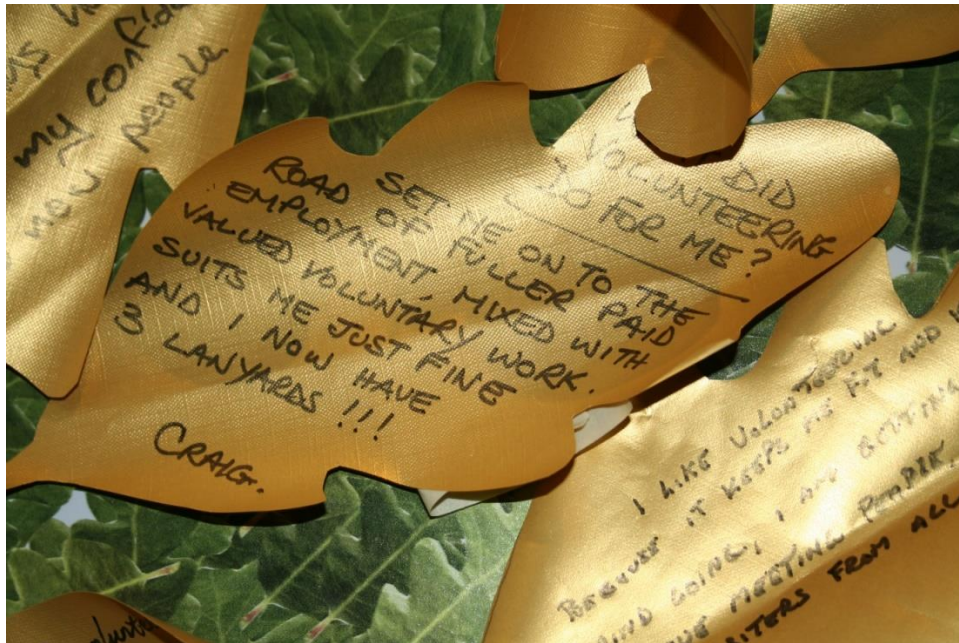 my confid
new people
DID
VOLUNTEERING
DO FOR ME?
SET ME ON TO THE
ROAD OF FULLER PAID
EMPLOYMENT, MIXED WITH
VALUED VOLUNTARY WORK.
SUITS ME JUST FINE
AND I NOW HAVE
3 LANYARDS !!!
CRAIG.
I LIKE VOLUNTEERING
BECAUSE IT KEEPS ME FIT AND
AND GOING, I AM GETTING
MEETING PEOPLE.
FROM ALL